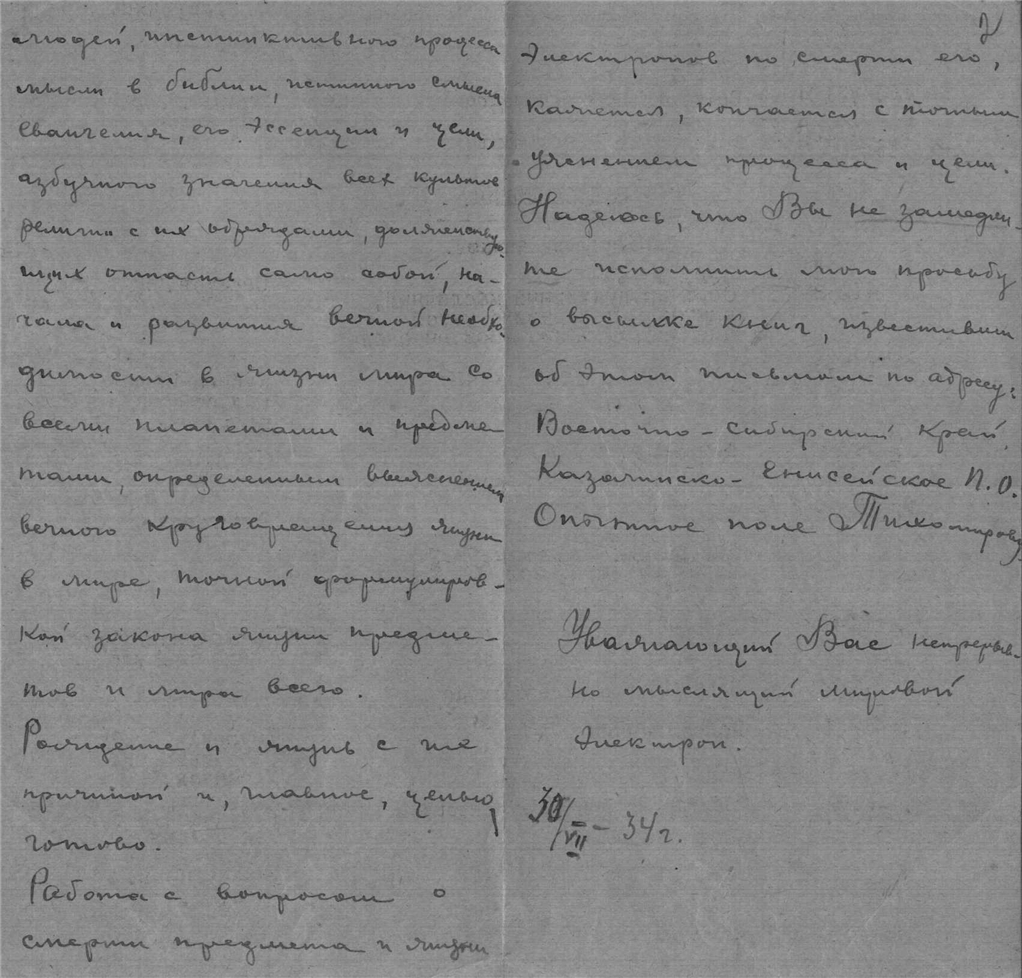 людей, инстинктивного процесса
мысли в библии, истинного смысла
Евангелия, его эссенции и цели,
азбучного значения всех культов
религии с их обрядами, долженствую-
щих отпасть само собой, на-
чала и развития вечной необхо-
димости в жизни мира со
всеми планетами и предме
тами, определенным выяснением
вечного круговращения жизни
в мире, точной формулиров-
кой закона жизни предме-
тов и мира всего.
Рождение и жизнь с ее
причиной и, главное, целью
готово.
Работа с вопросом о
смерти предмета и жизни
2
Электронов по смерти его,
кажется, кончается с точным
уяснением процесса и цели.
Надеюсь, что Вы не замедли-
те исполнить мою просьбу
о высылке книг, известивши
об этом письмом по адресу:
Восточно-Сибирский край,
Казачинско-Енисейское П.О.
Опытное поле Тихомирову
Уважающий Вас непрерыв-
но мыслящий мировой
Электрон.
30/VII - 34 г.